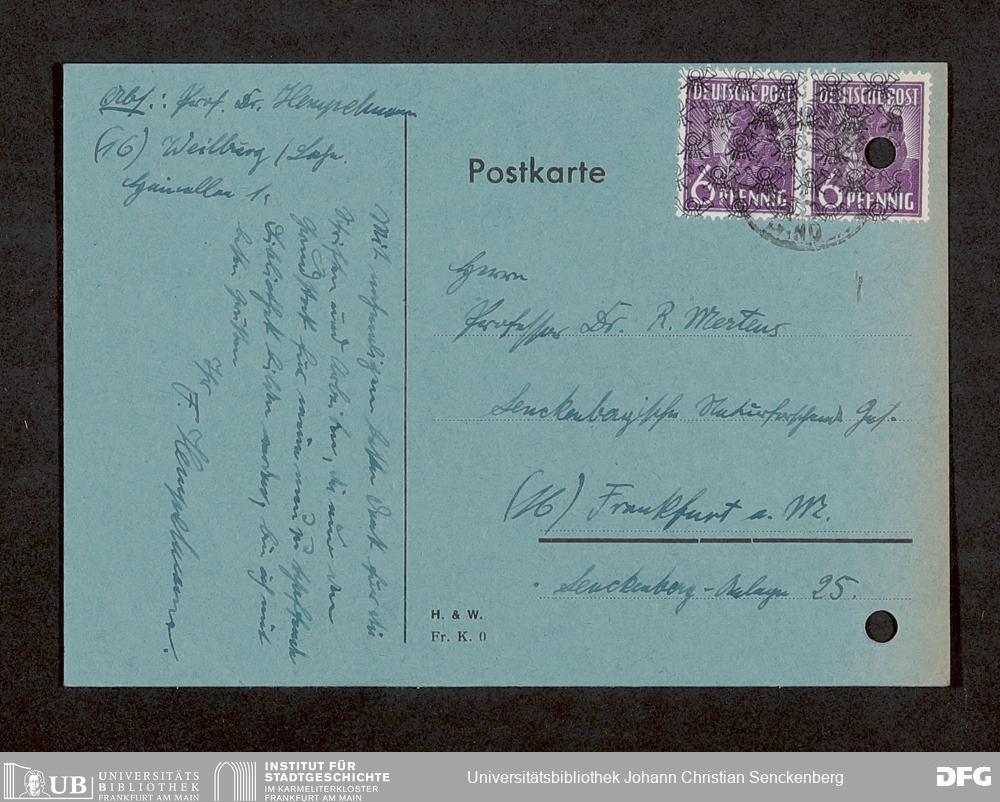 Abs.: Prof. Dr. Hempelmann
(16) Weilburg / Lahn.
Hainallee 1.
Postkarte
DEUTSCHE POST
6 PFENNIG
DEUTSCHE POST
6 PFENNIG
Herrn
Professor Dr. R. Mertens
Senckenbergische Naturforschende Ges.
(16) Frankfurt a. M.
Senckenberg-Anlage 25.
H. & W.
Fr. K. 0
Mit nochmaligem besten Dank für die
und Arbeiten, die nun den
Grundstock für meine neu zu schaffende
Bibliothek bilden werden, bin ich mit
besten Grüßen
Ihr
F. Hempelmann.
UB
UNIVERSITÄTS
BIBLIOTHEK
FRANKFURT AM MAIN
INSTITUT FÜR
STADTGESCHICHTE
IM KARMELITERKLOSTER
FRANKFURT AM MAIN
Universitätsbibliothek Johann Christian Senckenberg
DFG